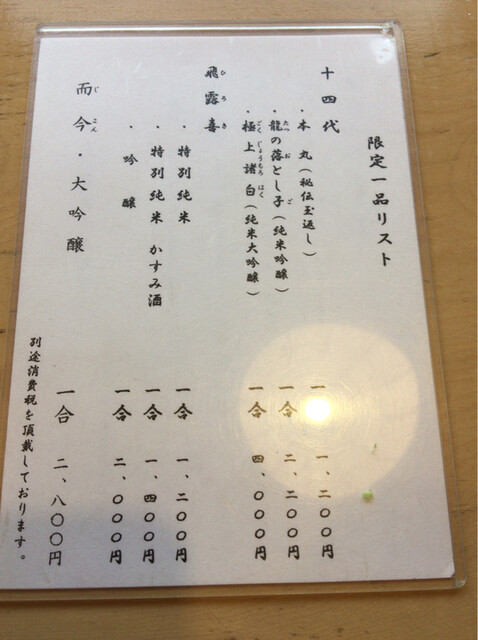 限定一品リスト
十四代
・本 丸(秘伝玉返し) 一 一、二〇〇円
たつ お ご
・龍の落とし子(純米吟醸) 一合 二、二〇〇円
ごくじょうもろはく
・極上諸白(純米大吟醸) 一合 四、〇〇〇円
ひろき
飛露喜
・特別純米 一合 一、二〇〇円
・特別純米 かすみ酒 一合 一、四〇〇円
・吟 醸 一合 二、〇〇〇円
じこん
而今・大吟醸 一合 二、八〇〇円
別途消費税を頂戴しております。